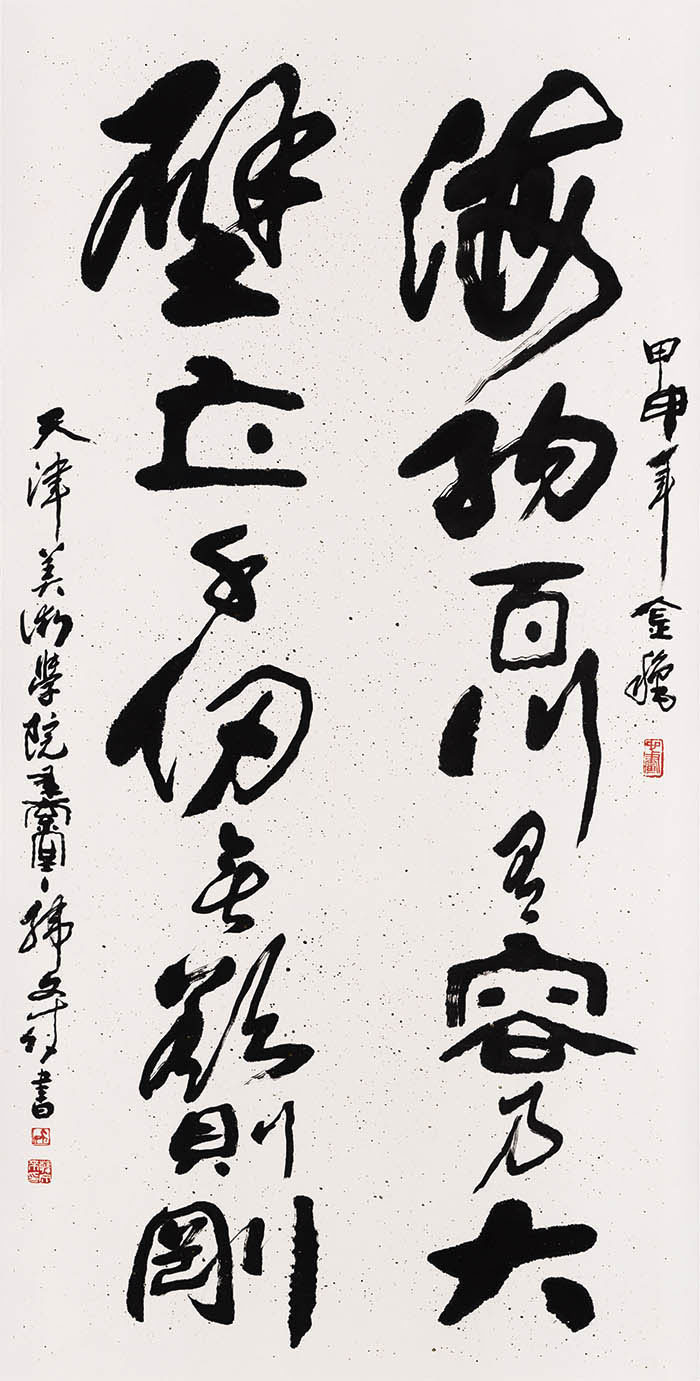 甲申年金秋
海納百川有容乃大
壁立千仞無欲則剛
天津美術學院書